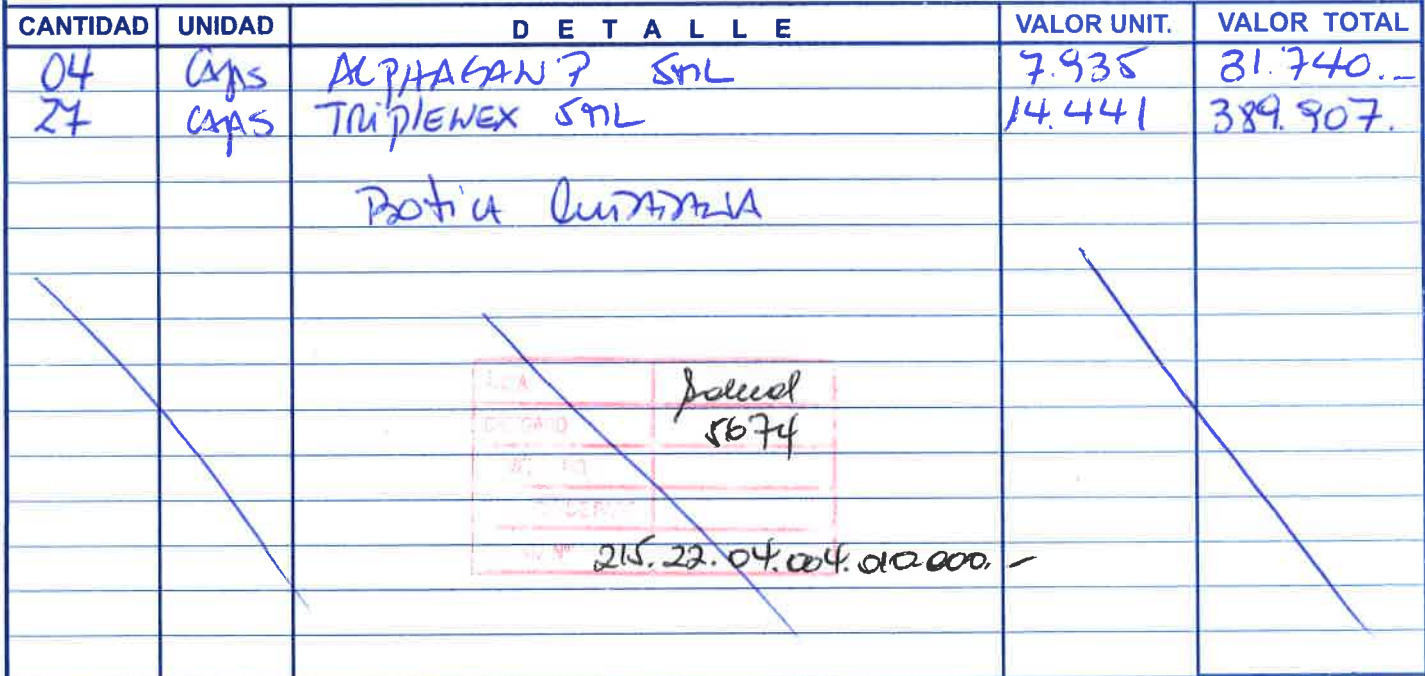 CANTIDAD UNIDAD DETALLE VALOR UNIT. VALOR TOTAL
04 Cajas ALPHAGAN P 5ML 7.935 31.740.-
27 CAJAS TRIPLENEX 5ML 14.441 389.907.
Botica
Salud
5674
215.22.04.004.010.000.-